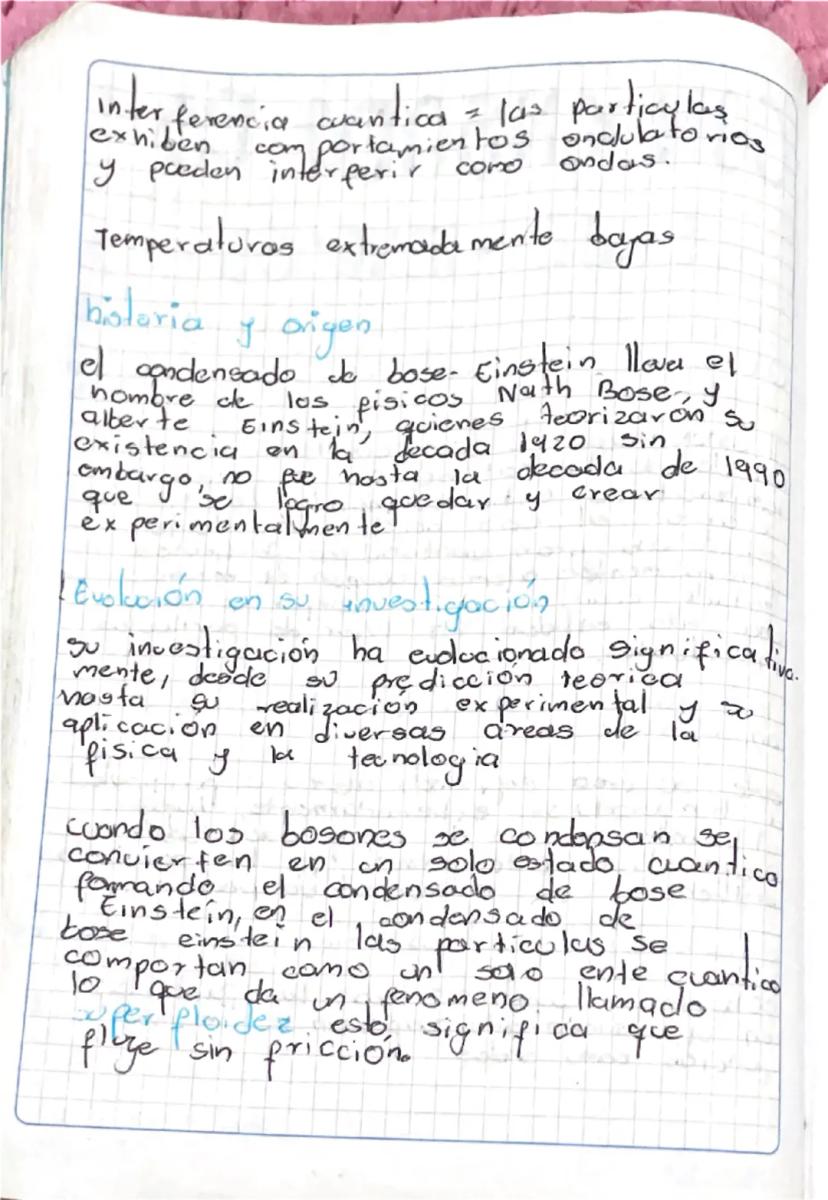 interferencia cuantica = las particulas
exhiben comportamientos ondulatorios
y pueden interferir como ondas.
Temperaturas extremadamente bajas
historia y origen
el condensado de bose-Einstein lleva el
nombre de los fisicos Nath Bose, y
alberte Einstein, quienes teorizaron su
existencia en la decada 1920 sin
embargo, no fue hasta la decada de 1990
que se logro quedar y crear
experimentalmente
Evolución en su investigación
su investigación ha evolucionado significativa-
mente, desde su predicción teorica
hasta su realización experimental y su
aplicación en diversas áreas de la
fisica y la tecnologia
cuando los bosones se condensan se
convierten en un solo estado cuantico
formando el condensado de bose
Einstein, en el condensado de
bose einstein las particulas se
comportan como un solo ente cuantico
lo que da un fenomeno llamado
superfloidez esto significa que
fluye sin fricción.